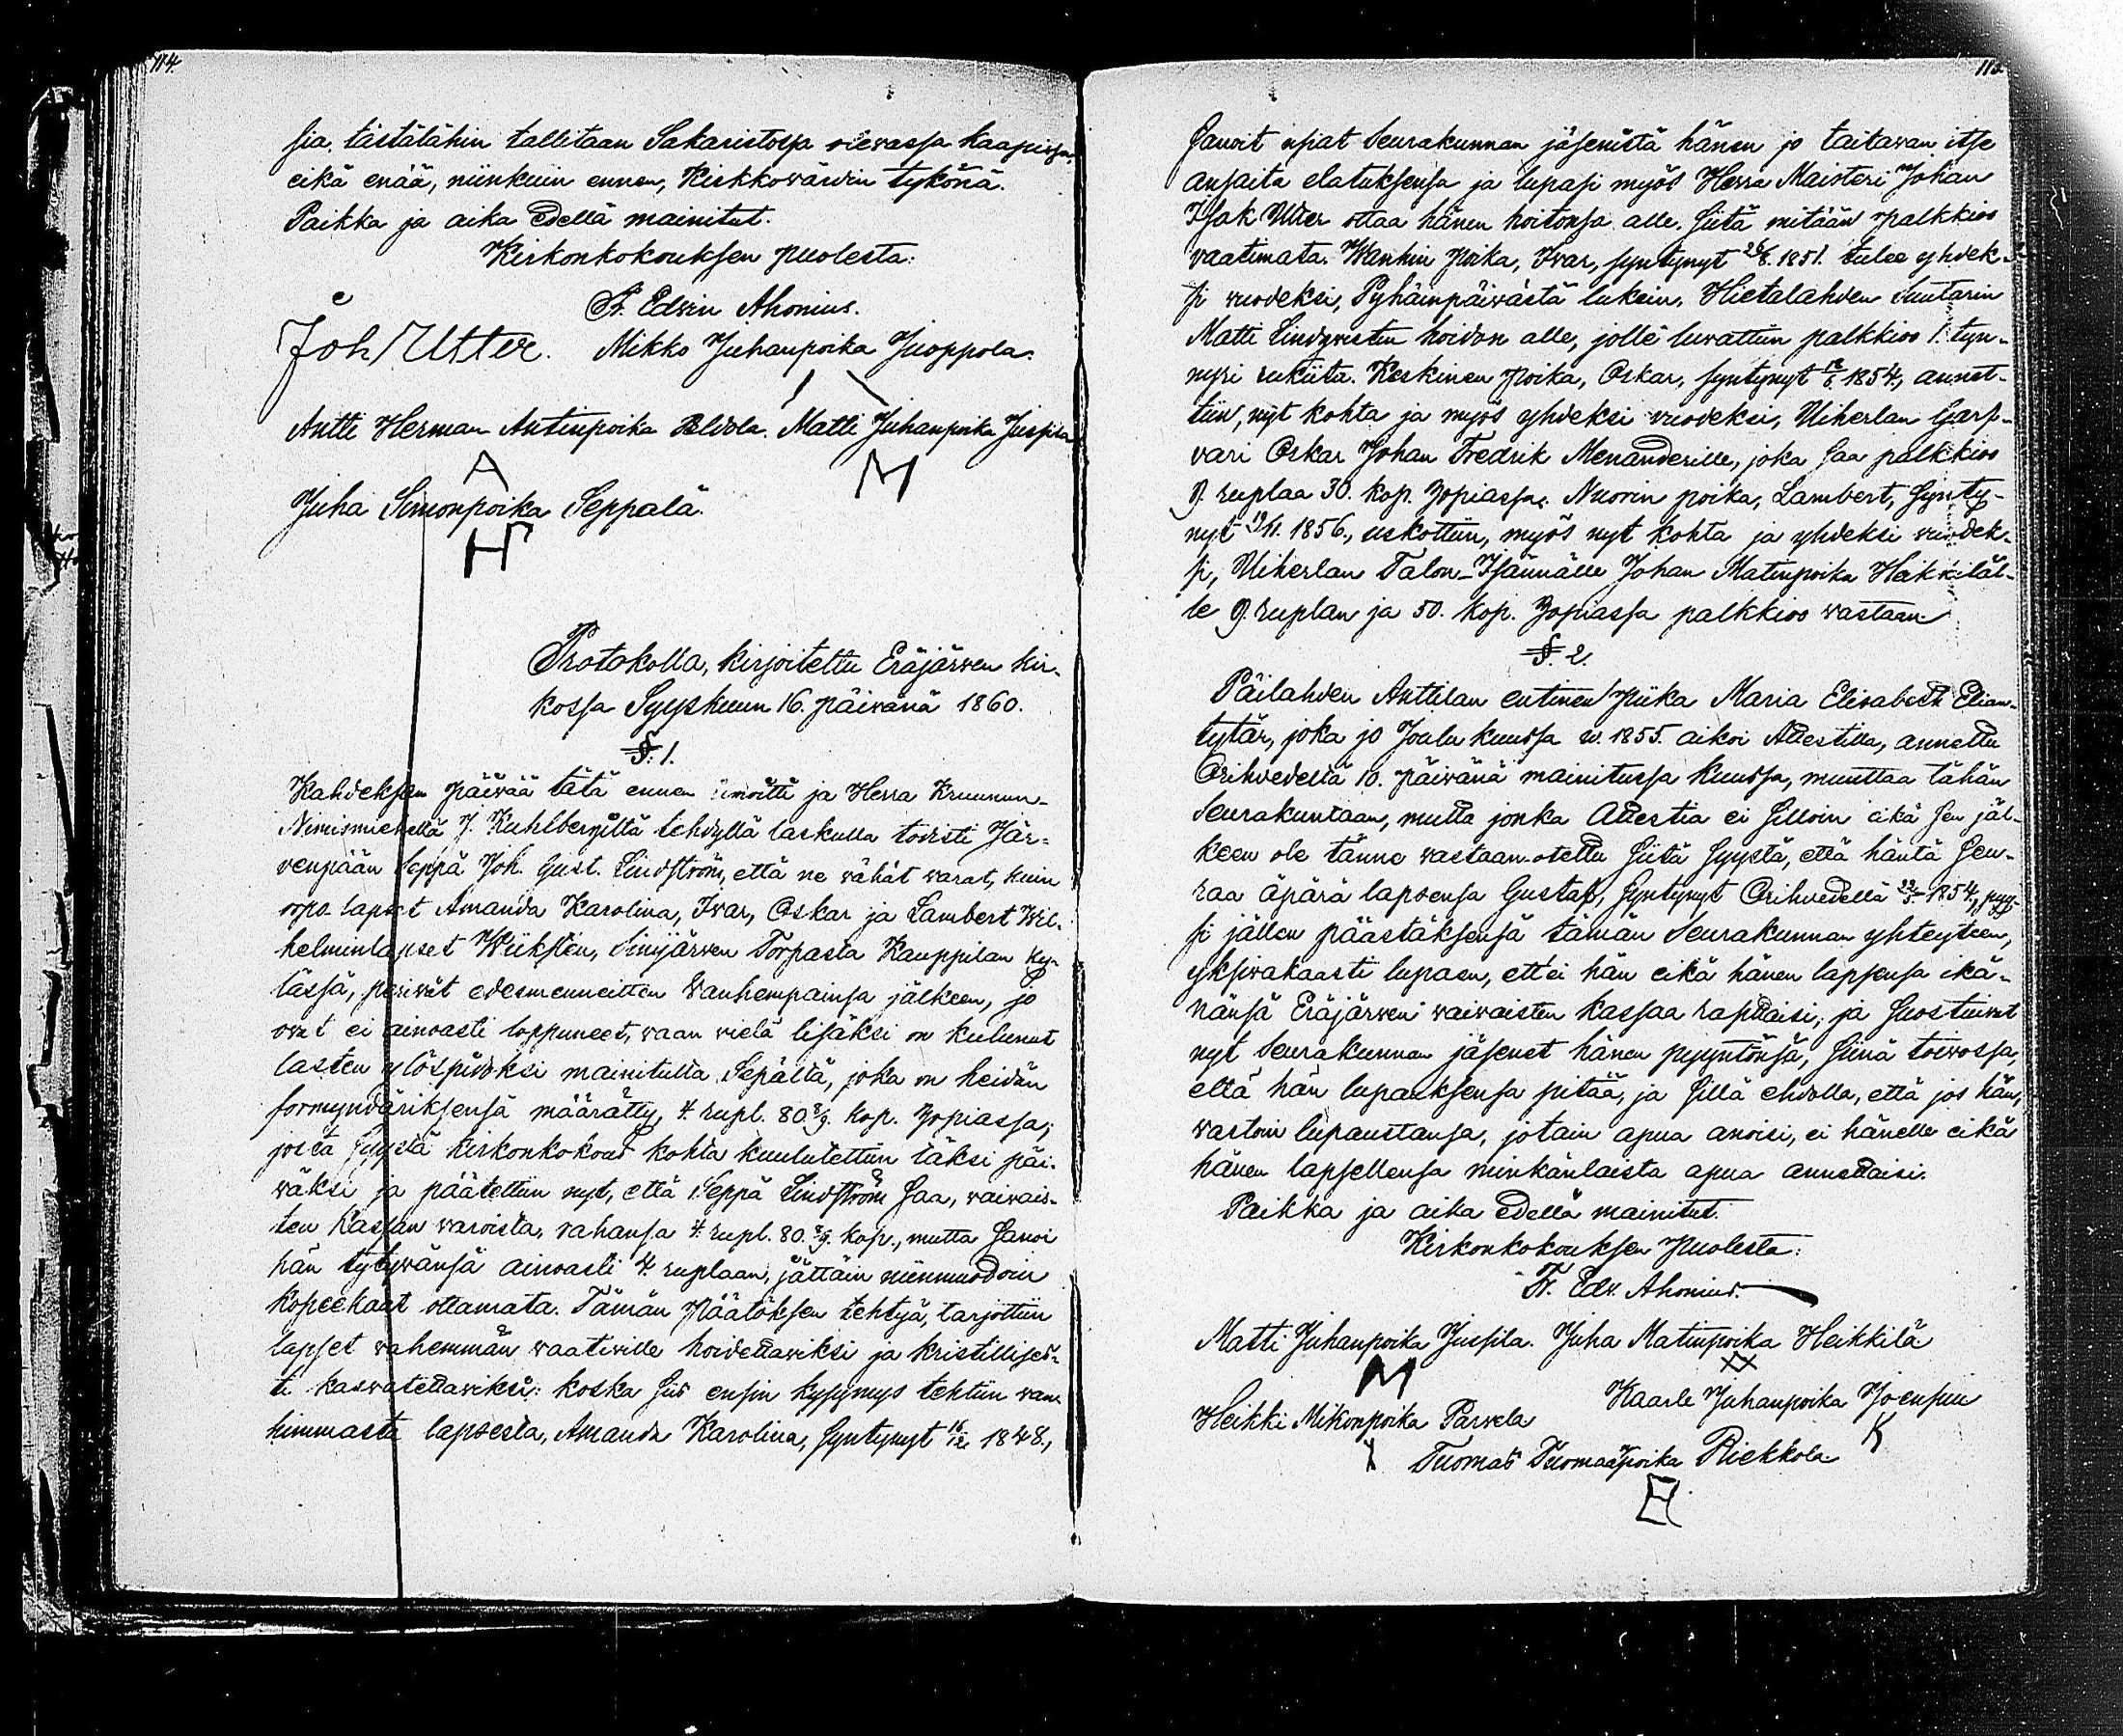 114.
sia, tästälähin tallitaan Sakaristossa olevassa kaapissa,
eikä enää, niinkuin ennen, Kirkkowärdin tykönä.
Paikka ja aika edellä mainitut.
Kirkonkokouksen puolesta:
Fr. Edvin Ahonius.
Joh Utter. Mikko Juhanpoika Juoppola.
Antti Herman Antinpoika Matti Juhanpoika Jussila
A M
Juha Simonpoika Seppälä.
H
Protokolla, kirjoitettu Eräjärwen kir-
kossa Syyskuun 16. päivänä 1860.
§. 1.
Kahdeksan päivää tätä ennen ilmoitti ja Herra Kruunun-
Nimismiehellä J. Kuhlbergiltä tehdyllä laskulla todisti Jär-
venpään Seppä Joh. Gust. Lindström, että ne vähät warat, kuin
orpo lapset Amanda Karolina, Ivar, Oskar ja Lambert Wil-
helminlapset Wiksten, Sinijärwen Torpasta Kauppilan ky-
lässä, perivät edesmenneitten Vanhempainsa jälkeen, jo
ovat ei ainoasti loppuneet, vaan vielä lisäksi on kulunut
lasten ylöspidoksi mainitulta Sepältä, joka on heidän
formyndäriksensä määrätty, 4 rupl. 80 2/9. kop. Hopiassa;
josta syystä kirkonkokous kohta kuulutettiin täksi päi-
väksi ja päätettiin nyt, että Seppä Lindström saa, vaivais-
ten Kassan varoista, rahansa 4. rupl. 80 2/9. kop., mutta sanoi
hän tytyvänsä ainoasti 4. ruplaan, jättäin niinmuodoin
kopeekaat ottamata. Tämän Päätöksen tehtyä, tarjottiin
lapset vähemmän vaativille hoidettaviksi ja kristillises-
ti kasvatettaviksi: koska siis ensin kysymys tehtiin van-
himmasta lapsesta, Amanda Karolina, syntynyt 16/12 1848.,
115.
sanoit usiat Seurakunnan jäsenistä hänen jo taitavan itse
ansaita elatuksensa ja lupasi myös Herra Maisteri Johan
Isak Utter ottaa hänen hoitonsa alle, siitä mitään palkkioo
vaatimata. Wanhin poika, Ivar, syntynyt 26/8. 1851. tulee yhdek-
si vuodeksi, Pyhäinpäivästä lukein, Hietalahden Suutarin
Matti Lindqvistin hoidon alle, jolle luvattiin palkkioo 1. tyn-
nyri rukiita. Keskinen poika, Oskar, syntynyt 12/6 1854., annet-
tiin, nyt kohta ja myös yhdeksi vuodeksi, Uiherlan Garf-
vari Oskar Johan Fredrik Menanderille, joka saa palkkioo
9. ruplaa 30. kop. Hopiassa. Nuorin poika, Lambert, synty-
nyt 19/11. 1856., uskottiin, myös nyt kohta ja yhdeksi vuodek-
si, Uiherlan Talon-Isännälle Johan Matinpoika Heikkiläl-
le 9. ruplan ja 50. kop. Hopiassa palkkioo vastaan.
§. 2.
Päilahden Anttilan entinen Piika Maria Elisabeth Elian-
tytär, joka jo Joulukuussa w. 1855. aikoi Attestilla, annettu
Orihvedeltä 10. päivänä mainitussa kuussa, muuttaa tähän
Seurakuntaan, mutta jonka Attestia ei silloin eikä sen jäl-
keen ole tänne vastaan-otettu siitä syystä, että häntä seu-
raa äpärä lapsensa Gustaf, syntynyt Orihvedellä 1854., pyy-
si jällen päästäksensä tämän Seurakunnan yhteyteen,
yksivakaasti lupaen, ett'ei hän eikä hänen lapsensa ikä-
nänsä Eräjärwen vaivaisten kassaa rasittaisi; ja suostuivat
nyt Seurakunnan jäsenet hänen pyyntönsä, siinä toivossa,
että hän lupauksensa pitää, ja sillä ehdolla, että jos hän,
vastoin lupaustansa, jotain apua anoisi, ei hänelle eikä
hänen lapsellensa minkänlaista apua annettaisi.
Paikka ja aika edellä mainitut.
Kirkonkokouksen Puolesta:
Fr. Edv. Ahonius.
Matti Juhanpoika Jussila. Juha Matinpoika Heikkilä
M XX
Heikki Mikonpoika Parvela Kaarle Juhanpoika Joensuu
K
Tuomas Tuomaapoika Riekkola